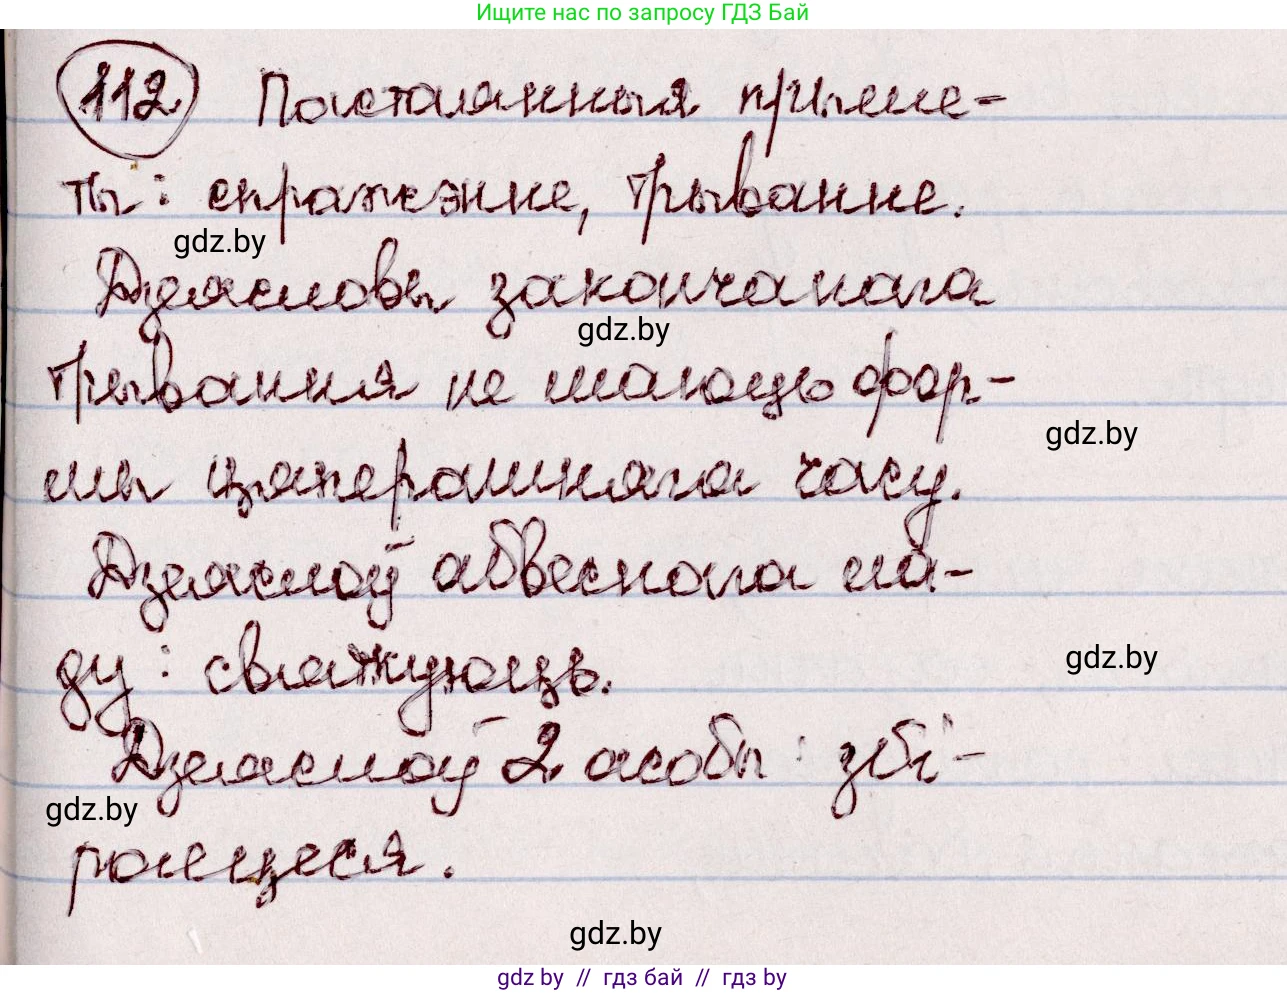 Ищите нас по запросу ГДЗ Бай
112 Пастаянныя прыме-
ты: спражэнне, трыванне.
gdz.by
Дзеясловы закончанага
gdz.by
трывання не маюць фор-
gdz.by
мы цяперашняга часу.
Дзеяслоў абвеснага ла-
ду: святкуюць.
gdz.by
Дзеяслоў 2 асобы: збі-
gdz.by
раецеся.
gdz.by
gdz by // гдз бай // гдз by